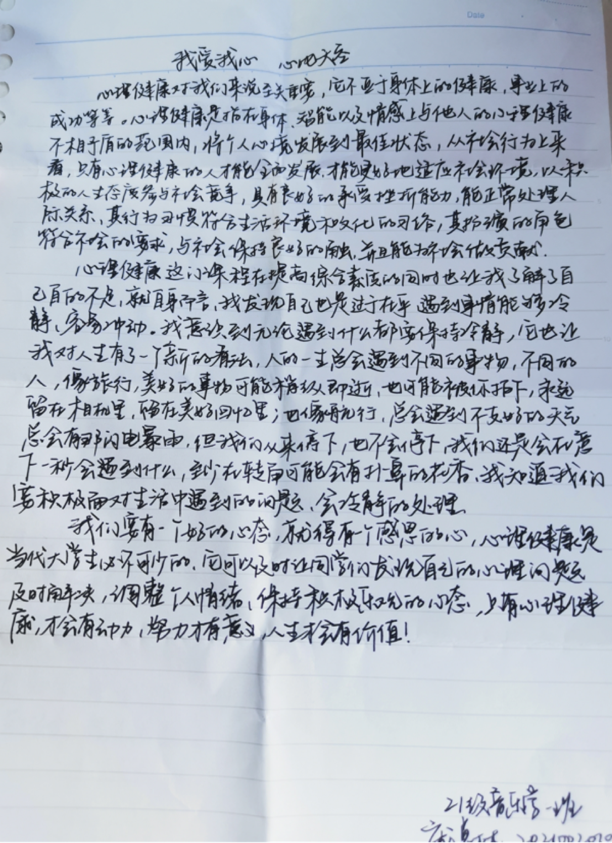 Date
我爱我心 心心大容
心理健康对我们来说至关重要,它不亚于身体上的健康,事业上的
成功等等。心理健康是指在身体、智能以及情感上与他人的心理健康
不相矛盾的范围内,将个人心境发展到最佳状态,从社会行为上来
看,只有心理健康的人才能全面发展,才能更好地适应社会环境,以积
极的人生态度参与社会竞争,具有良好的承受挫折能力,能正常处理人
际关系,其行为习惯符合生活环境和文化的习俗,其扮演的角色
符合社会的要求,与社会保持良好的接触,并且能为社会做贡献。
心理健康这门课程在提高综合素质的同时也让我了解了自
己自的不足,就自身而言,我发现自己也是过于在乎 遇到事情能够冷
静、容易冲动。我意识到无论遇到什么都要保持冷静,它也让
我对人生有了一个新的看法,人的一生总会遇到不同的事物,不同的
人,像旅行,美好的事物可能稍纵即逝,也可能被你拍下,永远
留在相机里,留在美好回忆里;也像飞行,总会遇到不友好的天气
总会有那闪电暴雨,但我们从来停下,也不会停下,我们还是会在意
下一秒会遇到什么,至少在转角可能会有扑鼻的花香。我知道我们
要积极面对生活中遇到的问题,会冷静的处理。
我们要有一个好的心态,就得有个感恩的心,心理健康是
当代大学生必不可少的,它可以及时让同学们发现自己的心理问题
及时解决,调整个人情绪,保持积极乐观的心态,只有心理健
康,才会有动力,努力才有意义,人生才会有价值!
21级音乐学一班